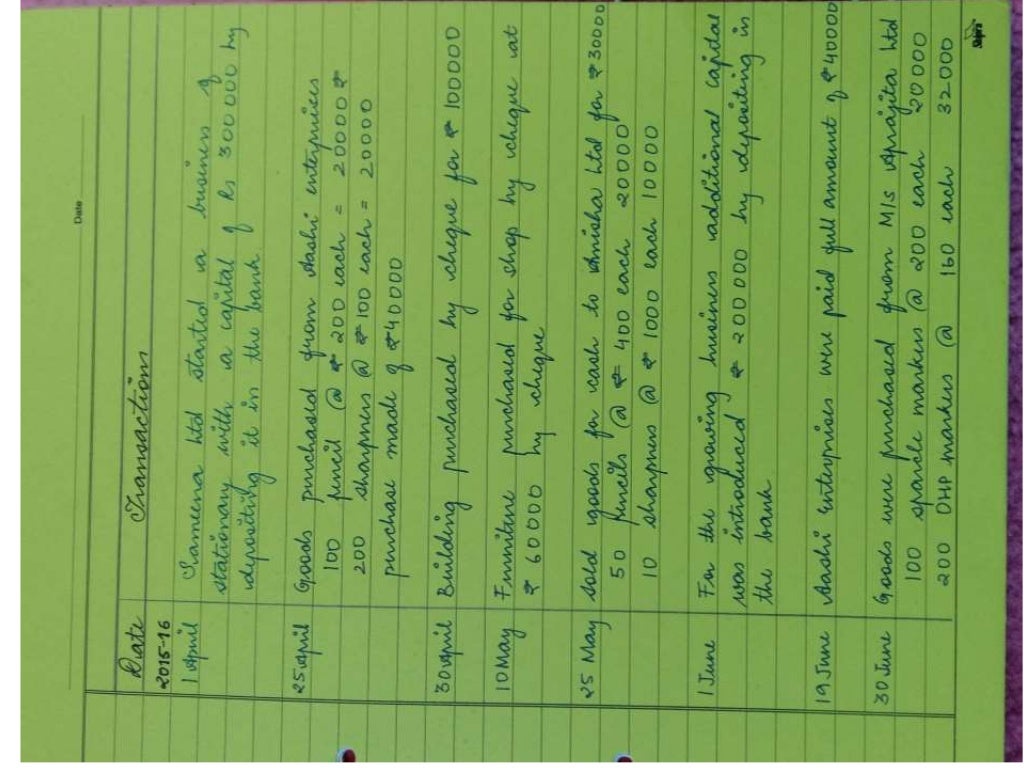 Date
Date Transaction
2015-16
1 April Sameena Ltd started a business of
stationary with a capital of Rs 300000 by
depositing it in the bank
25 April Goods purchased from Aashi enterprises
100 pencil @ ₹ 200 each = 20000 ₹
200 sharpners @ ₹ 100 each = 20000
purchase made of ₹40000
30 April Building purchased by cheque for ₹ 100000
10 May Furniture purchased for shop by cheque at
₹ 60000 by cheque
25 May Sold goods for cash to Amisha Ltd for ₹ 30000
50 pencils @ ₹ 400 each 20000
10 sharpners @ ₹ 1000 each 10000
1 June For the growing business additional capital
was introduced ₹ 200000 by depositing in
the bank
19 June Aashi enterprises were paid full amount of ₹ 40000
30 June Goods were purchased from M/s Aprajita Ltd
100 sparcle markers @ 200 each 20000
200 OHP markers @ 160 each 32000